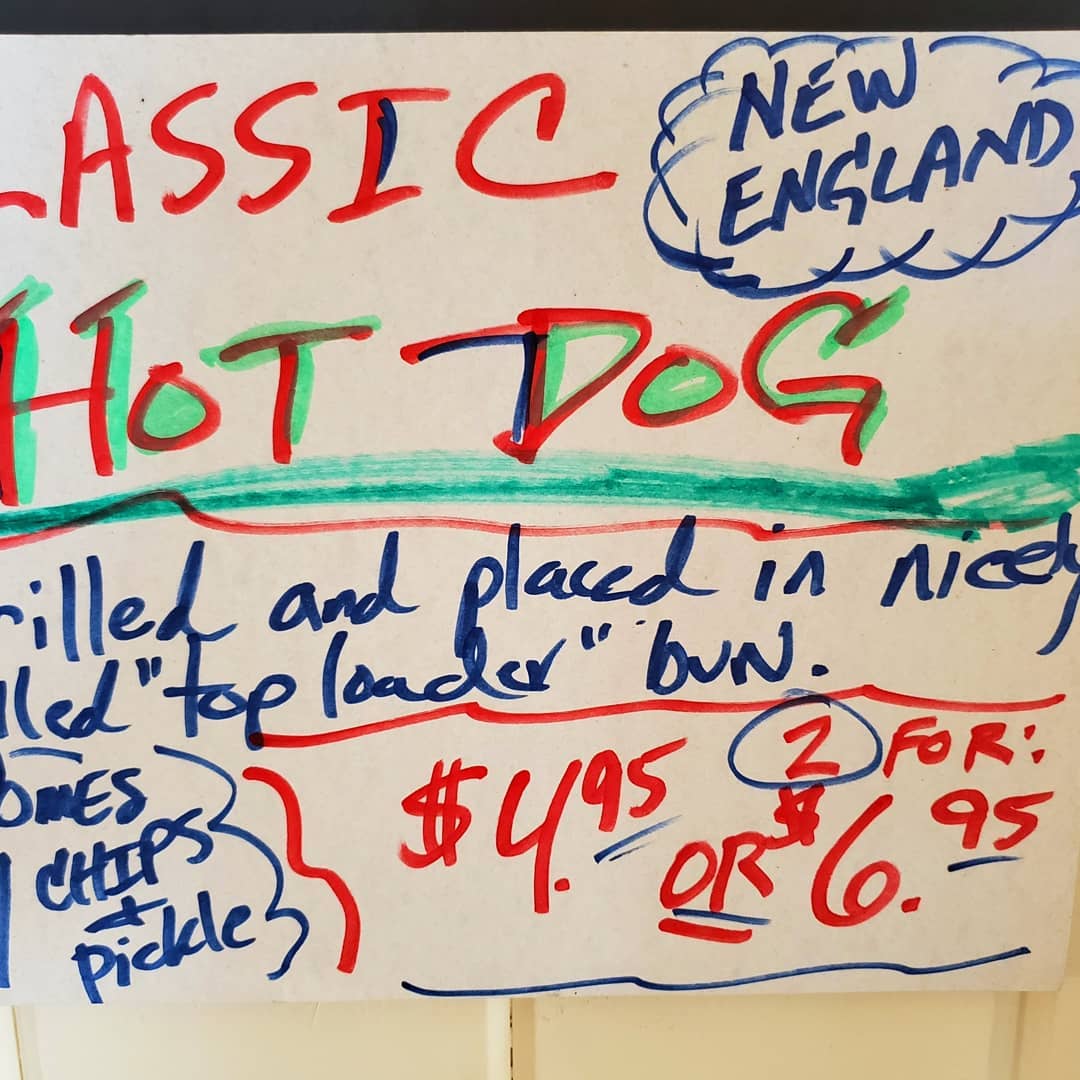 LASSIC
NEW
ENGLAND
HOT DOG
rilled and placed in nicely
lled "top loader" bun.
OMES
CHIPS
+
pickle
$4.95
OR
2 FOR:
$6.95